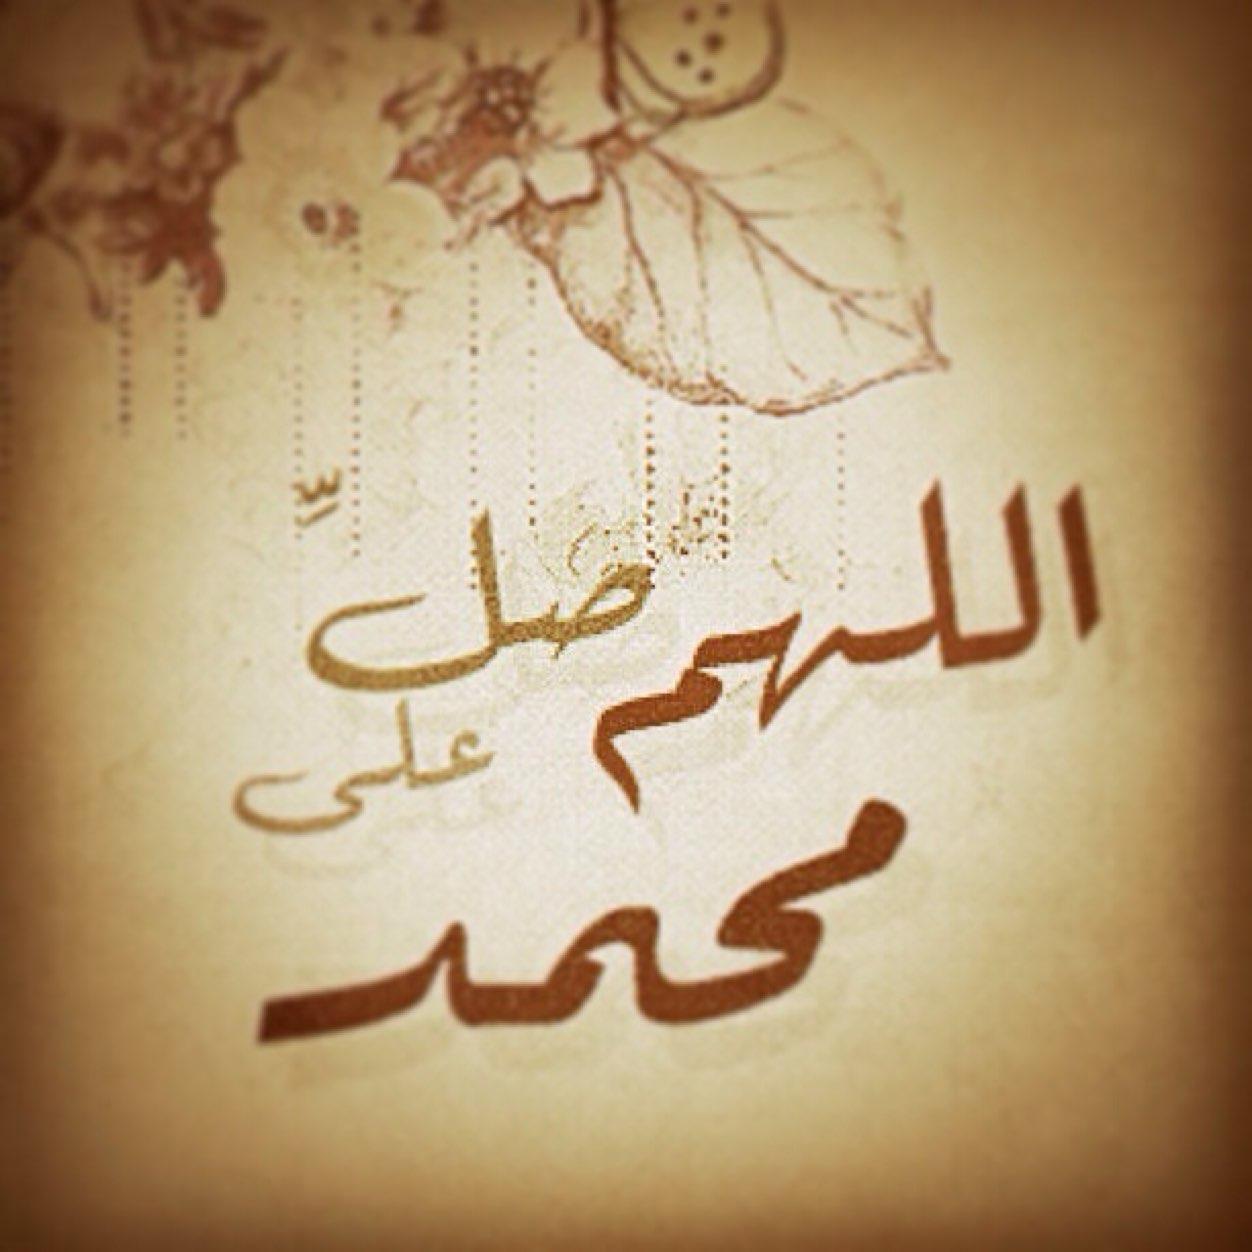 اللهم صلِّ
على
محمد